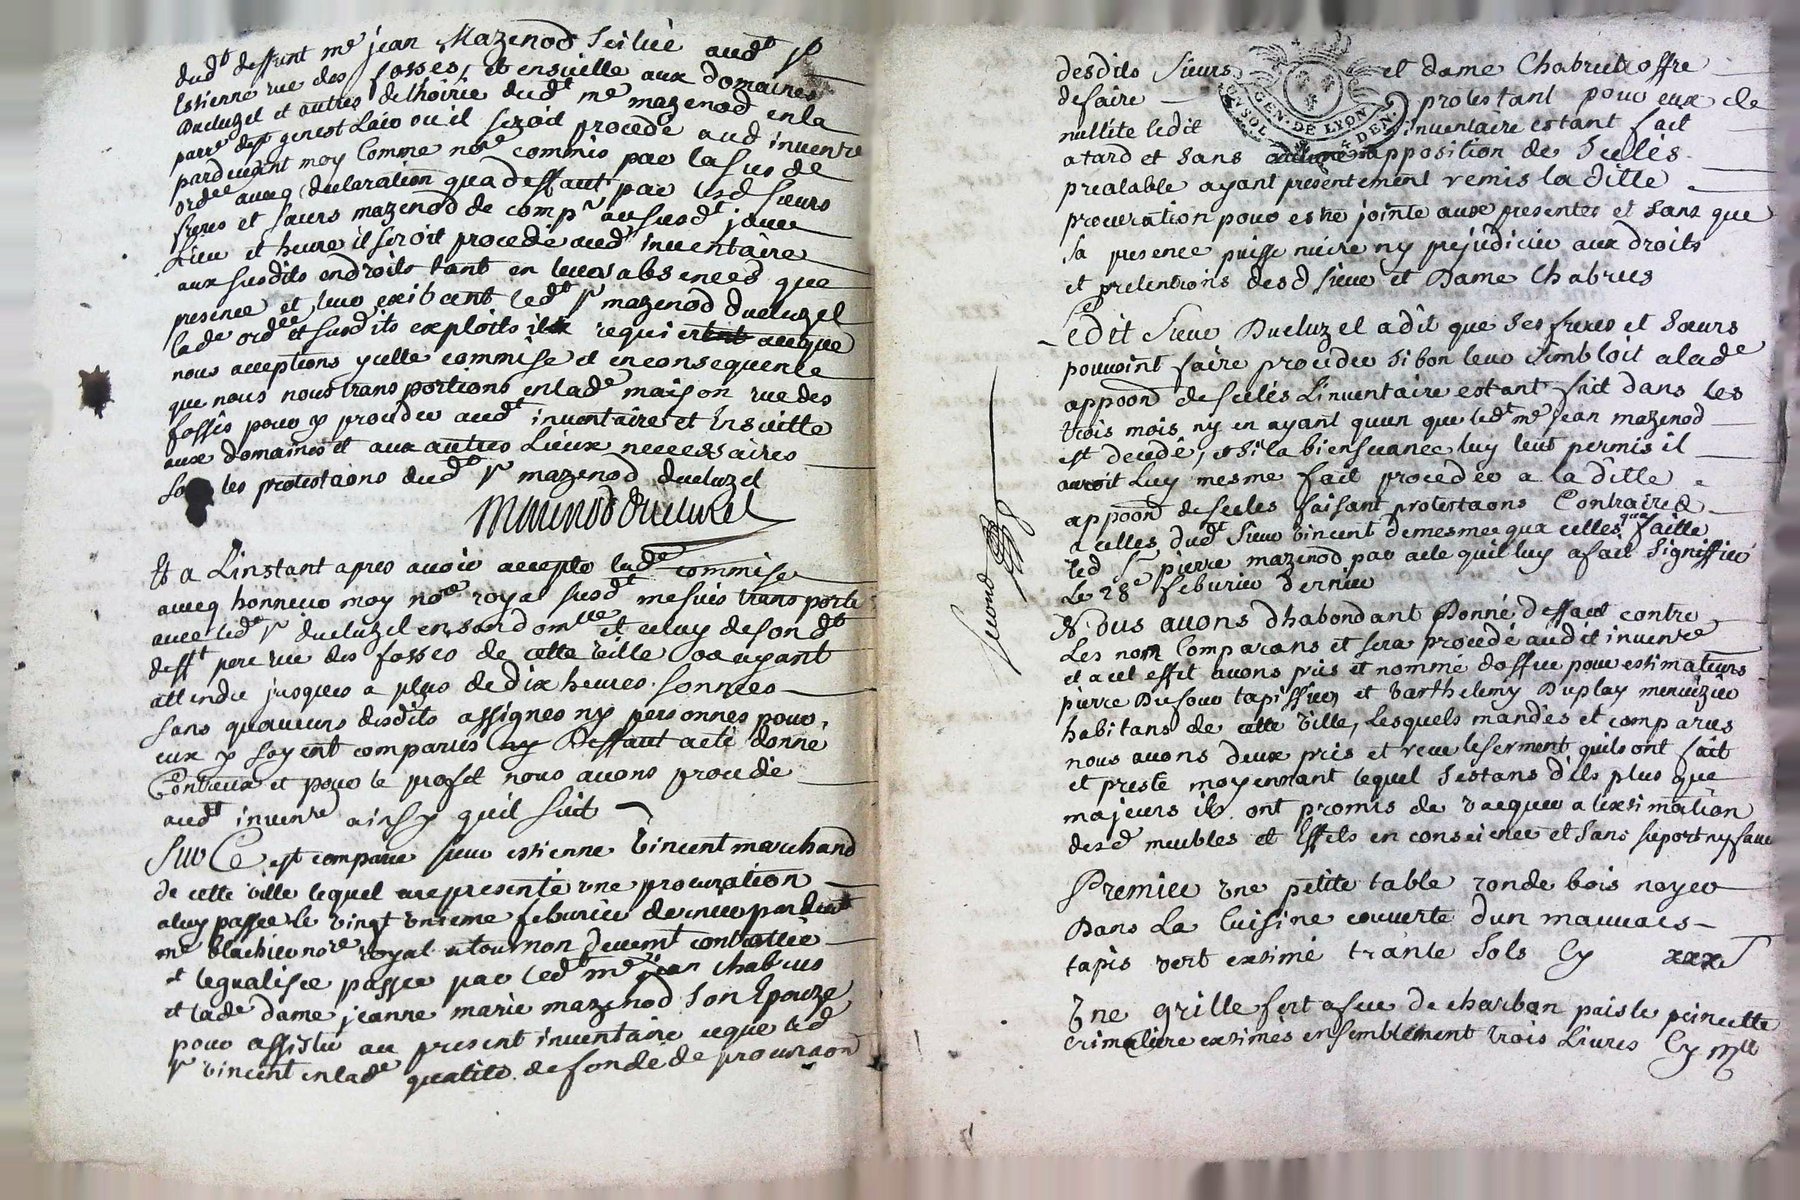 dud.t deffunt me jean Mazenod scituée aud.t St
Estienne rue des fosses, et ensuitte aux domaines
Ducluzel et autres delhoirie dud.t me mazenod en la
parre de St genest Lair ou il seroit procede aud inventre
pardevant moy Comme nore commis par lasus de
ordee avecq declaration qua deffaut par lesd sieurs
freres et sœurs mazenod de compr au susd.t jour
Lieu et heure il seroit procede aud.t inventaire
aux susdits endroits tant en leurs absences que
presence et leur exibant led.t Sr mazenod ducluzel
lade ordee et susdits exploits il requiert que
nous acceptions ycelle commise et en consequence
que nous nous transportions en lade maison rue des
fossés pour y proceder aud.t inventaire et Ensuitte
aux domaines et aux autres Lieux necessaires
sous les protestaons dud.t Sr mazenod ducluzel
Mazenod Ducluzel
Et a Linstant apres avoir accepte lade commise
avecq honneur moy nore royal susd.t me suis transporté
avec led.t Sr ducluzel en son domlle et celuy de son d.t
deff.t pere rue des fosses de cette ville ou ayant
attendu jusques a plus de dix heures sonnees
sans quaucuns desdits assignes ny personnes pour
eux y soyent comparus Deffaut a eté donné
Contreux et pour le profit nous avons procedé
aud.t inventre ainsy quil suit
Sur Ce est comparu sieur estienne Vincent marchand
de cette ville lequel a representé une procuration
a luy passée le vingt unieme feburier dernier pardevt
me blachier nore royal a tournon deuemt controllée
et legualisée passée par led.t me jean chabrus
et lade dame jeanne marie mazenod son Epouze
pour assister au present inventaire ceque led
Sr vincent en lade qualité de fondé de procuraon
desdits sieurs et dame Chabrus offre
de faire protestant pour eux de
nullité ledit inventaire estant fait
a tard et sans apposition de scelés
prealable ayant presentement remis la ditte
procuration pour estre jointe aux presentes et sans que
sa presence puisse nuire ny prejudicier aux droits
et pretentions desd sieur et Dame Chabrus
Ledit Sieur Ducluzel a dit que ses freres et sœurs
pouvoint faire proceder si bon leur sembloit a lade
appoon de scelés Linventaire estant fait dans les
trois mois ny en ayant quun que led.t me jean mazenod
est decedé, et si la bienseance luy leut permis il
auroit Luy mesme fait proceder a la ditte
appoon de scelés faisant protestaons Contraires
a celles dud.t Sieur vincent de mesme qua celles qua faitte
led Sr pierre mazenod par acte quil luy a fait signiffier
Le 28e feburier dernier
Nous avons dhabondant Donné deffaut contre
Les non Comparans et sera procedé aud.t inventre
et a cet effet avons pris et nommé doffice pour estimateurs
pierre Dufour tapissier et Barthelemy Duplay menuizier
habitans de cette ville, Lesquels mandés et comparus
nous avons deux pris et receu le serment quils ont fait
et presté moyennant lequel sestans dits plus que
majeurs ils ont promis de vacquer a lextimation
desd meubles et Effets en conscience et sans suport ny faveur
second
Premier une petite table ronde bois noyer
Dans La Cuisine couverte dun mauvais
tapis vert extimé trante sols Cy xxxs
Une grille fert a feu de charbon paisle pincette
crimaliere extimés ensemblement trois Livres Cy iijll
GEN. DE LYON